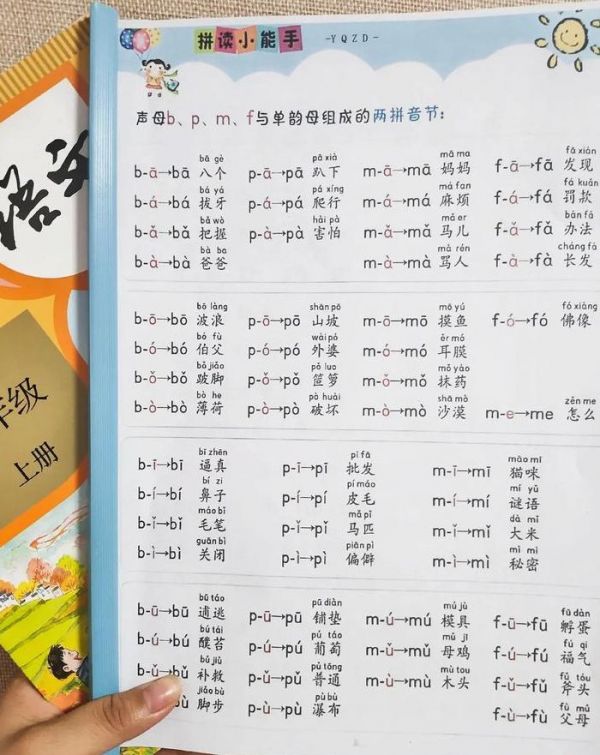 拼读小能手
-YQZD-
声母b、p、m、f与单韵母组成的两拼音节：
bā gè pā xià mā ma fā xiàn
b-ā→bā 八个 p-ā→pā 趴下 m-ā→mā 妈妈 f-ā→fā 发现
bá yá pá xíng má fan fá kuán
b-á→bá 拔牙 p-á→pá 爬行 m-á→má 麻烦 f-á→fá 罚款
bǎ wò hài pà mǎ er bàn fǎ
b-ǎ→bǎ 把握 p-à→pà 害怕 m-ǎ→mǎ 马儿 f-ǎ→fǎ 办法
bà ba mà rén cháng fà
b-à→bà 爸爸 m-à→mà 骂人 f-à→fà 长发
bō làng shān pō mō yú fó xiàng
b-ō→bō 波浪 p-ō→pō 山坡 m-ō→mō 摸鱼 f-ó→fó 佛像
bó fù wài pó ěr mó
b-ó→bó 伯父 p-ó→pó 外婆 m-ó→mó 耳膜
bǒ jiǎo pǒ luo mǒ yào
b-ǒ→bǒ 跛脚 p-ǒ→pǒ 笸箩 m-ǒ→mǒ 抹药
bò he pò huài shā mò zěn me
b-ò→bò 薄荷 p-ò→pò 破坏 m-ò→mò 沙漠 m-e→me 怎么
bī zhēn pī fā māo mī
b-ī→bī 逼真 p-ī→pī 批发 m-ī→mī 猫咪
bí zi pí máo mí yǔ
b-í→bí 鼻子 p-í→pí 皮毛 m-í→mí 谜语
máo bǐ mǎ pǐ dà mǐ
b-ǐ→bǐ 毛笔 p-ǐ→pǐ 马匹 m-ǐ→mǐ 大米
guān bì piān pì mì mì
b-ì→bì 关闭 p-ì→pì 偏僻 m-ì→mì 秘密
bū táo pū diàn mú jù fū dàn
b-ū→bū 逋逃 p-ū→pū 铺垫 m-ú→mú 模具 f-ū→fū 孵蛋
bú tái pú táo mǔ jī fú qì
b-ú→bú 醭苔 p-ú→pú 葡萄 m-ǔ→mǔ 母鸡 f-ú→fú 福气
bǔ jiù pǔ tōng mù tou fǔ tóu
b-ǔ→bǔ 补救 p-ǔ→pǔ 普通 m-ù→mù 木头 f-ǔ→fǔ 斧头
jiǎo bù pù bù fù mǔ
bù 脚步 p-ù→pù 瀑布 f-ù→fù 父母
语文
年级
上册